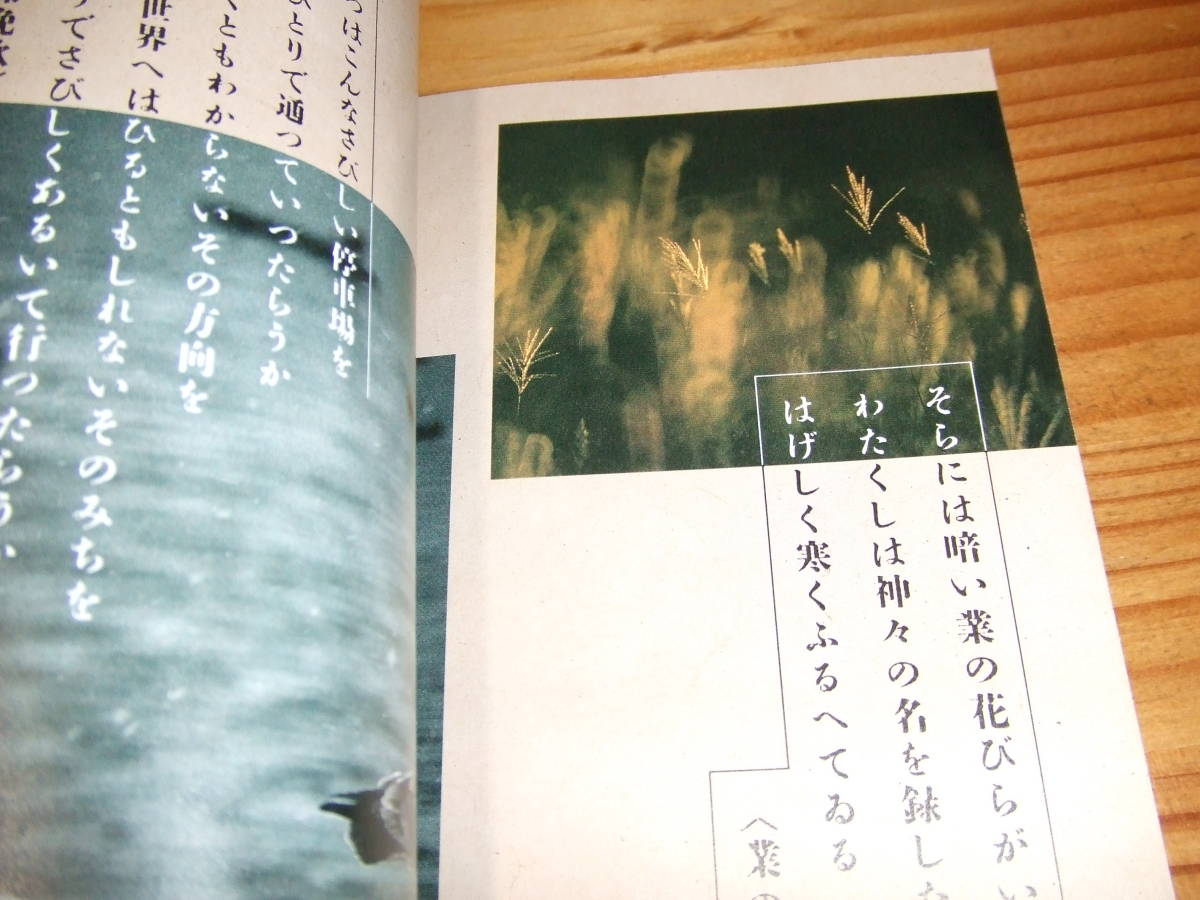 つはこんなさびしい停車場を
ひとりで通つていつたらうか
くともわからないその方向を
世界へはひるともしれないそのみちを
りでさびしくあるいて行つたらうか
そらには暗い業の花びらがい
わたくしは神々の名を録した
はげしく寒くふるへてゐる
〈業の